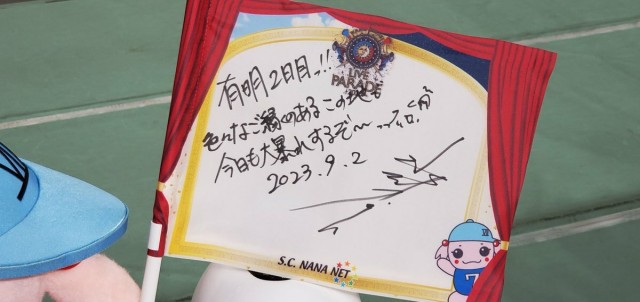 LIVE
PARADE
有明2日目ッ!!
色々なご縁のあるこの地で
今日も大暴れするぞ〜
2023.9.2
S.C. NANA NET
7